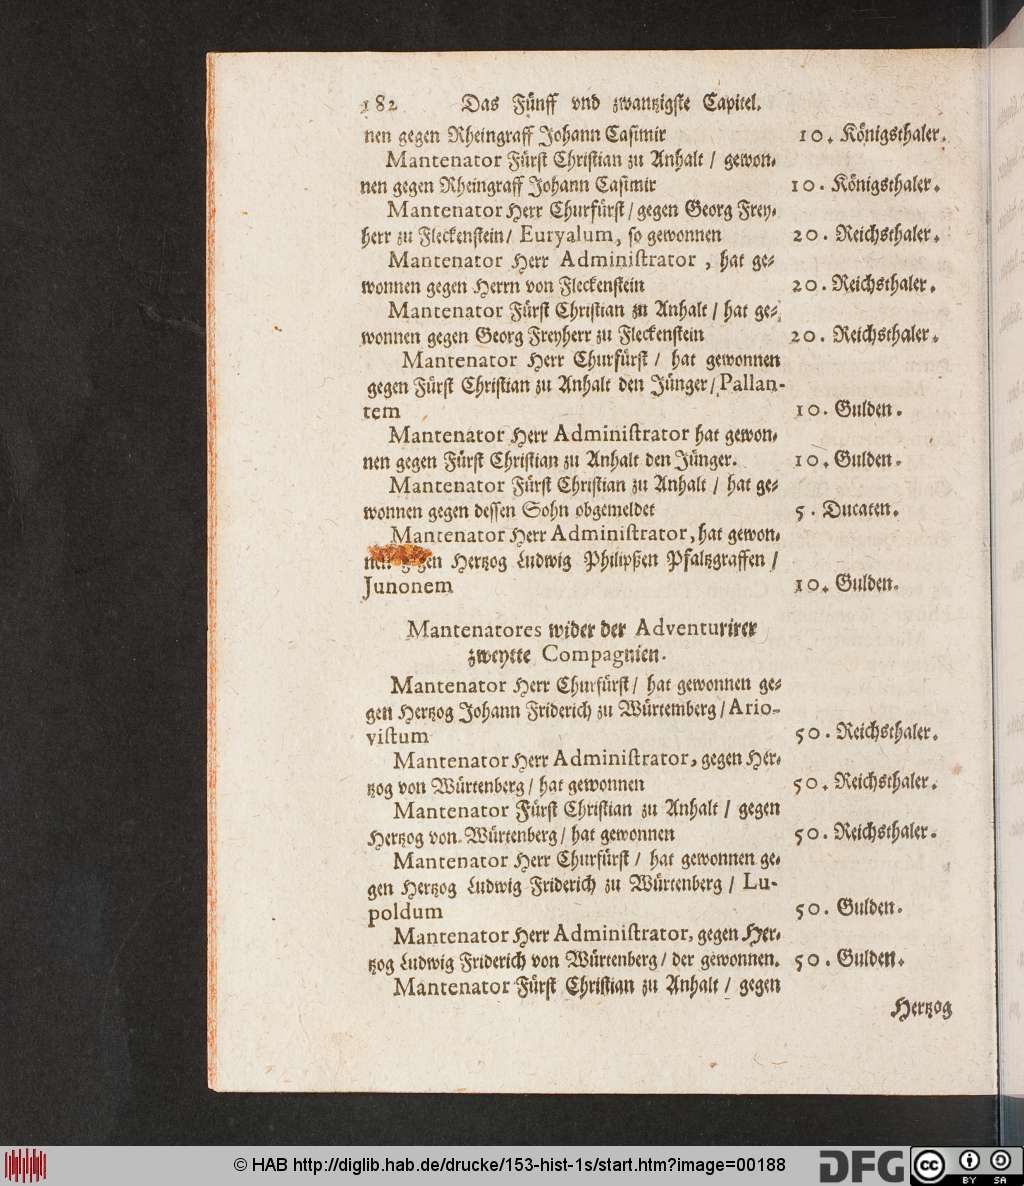 182 Das Fünff vnd zwantzigste Capitel.
nen gegen Rheingraff Johann Casimir 10. Königsthaler.
Mantenator Fürst Christian zu Anhalt / gewon-
nen gegen Rheingraff Johann Casimir 10. Königsthaler.
Mantenator Herr Churfürst / gegen Georg Frey-
herr zu Fleckenstein / Euryalum, so gewonnen 20. Reichsthaler.
Mantenator Herr Administrator , hat ge-
wonnen gegen Herrn von Fleckenstein 20. Reichsthaler.
Mantenator Fürst Christian zu Anhalt / hat ge-
wonnen gegen Georg Freyherr zu Fleckenstein 20. Reichsthaler.
Mantenator Herr Churfürst / hat gewonnen
gegen Fürst Christian zu Anhalt den Jünger / Pallan-
tem 10. Gulden.
Mantenator Herr Administrator hat gewon-
nen gegen Fürst Christian zu Anhalt den Jünger. 10. Gulden.
Mantenator Fürst Christian zu Anhalt / hat ge-
wonnen gegen dessen Sohn obgemeldet 5. Ducaten.
Mantenator Herr Administrator, hat gewon-
nen gegen Hertzog Ludwig Philipßen Pfaltzgraffen /
Junonem 10. Gulden.
Mantenatores wider der Adventurirer
zweytte Compagnien.
Mantenator Herr Churfürst / hat gewonnen ge-
gen Hertzog Johann Friderich zu Würtemberg / Ario-
vistum 50. Reichsthaler.
Mantenator Herr Administrator, gegen Her-
tzog von Würtenberg / hat gewonnen 50. Reichsthaler.
Mantenator Fürst Christian zu Anhalt / gegen
Hertzog von Würtenberg / hat gewonnen 50. Reichsthaler.
Mantenator Herr Churfürst / hat gewonnen ge-
gen Hertzog Ludwig Friderich zu Würtenberg / Lu-
poldum 50. Gulden.
Mantenator Herr Administrator, gegen Her-
tzog Ludwig Friderich von Würtenberg / der gewonnen. 50. Gulden.
Mantenator Fürst Christian zu Anhalt / gegen
Hertzog
© HAB http://diglib.hab.de/drucke/153-hist-1s/start.htm?image=00188 DFG cc BY SA